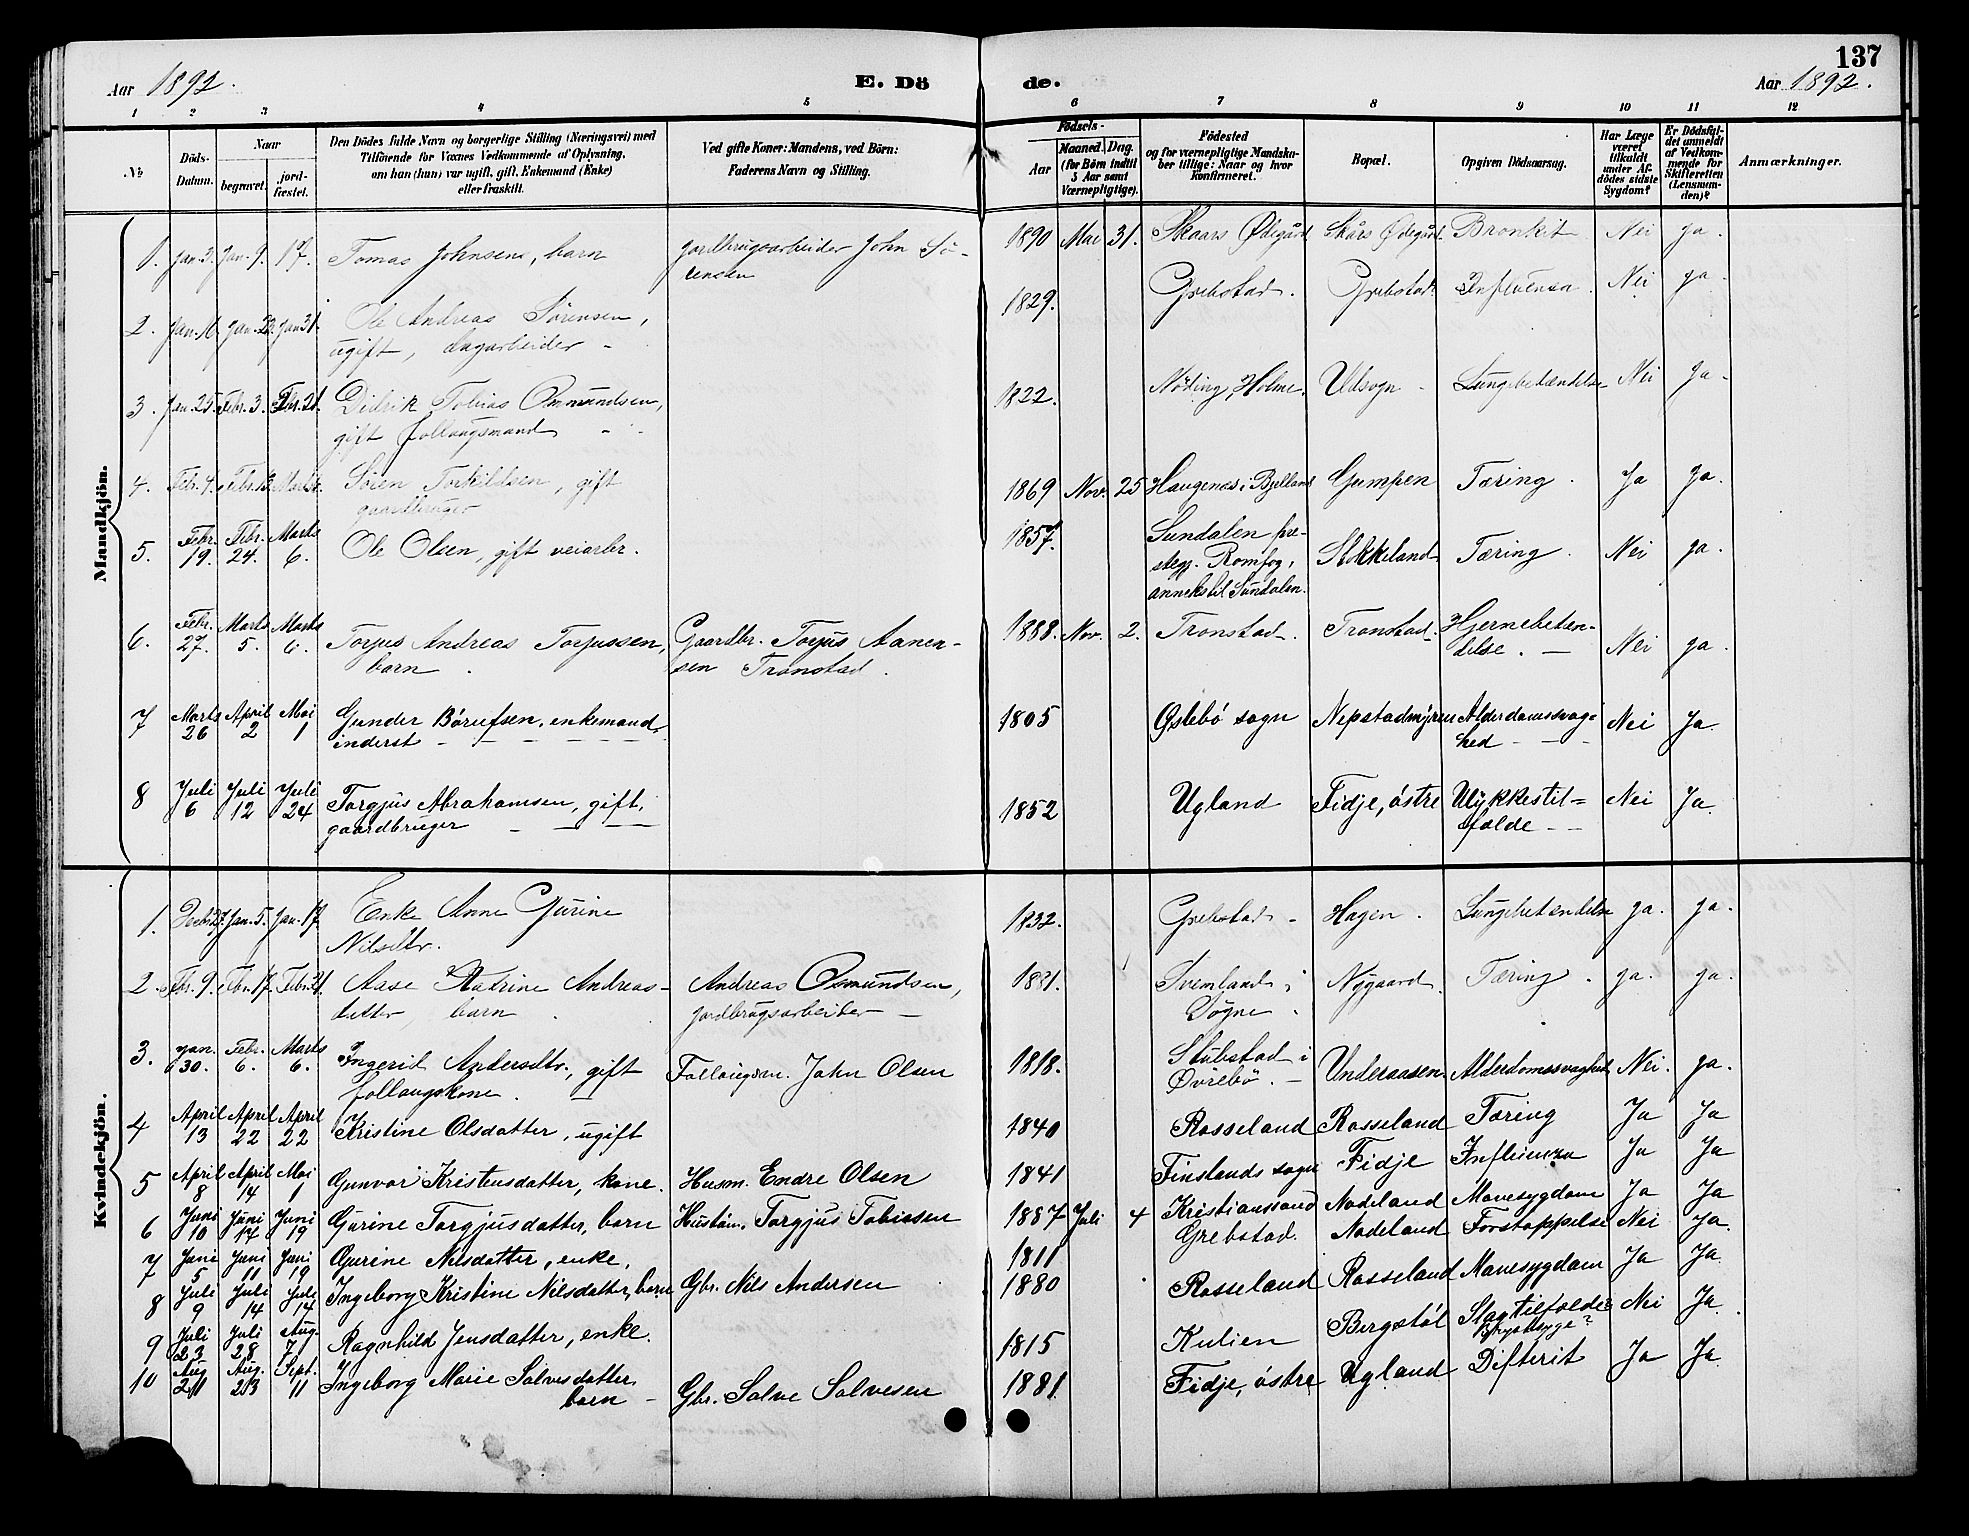 137
Aar 1892.
E. Dö
de.
Aar 1892.
1 2 3 4 5 6 7 8 9 10 11 12
№
Döds-Datum.
Naar
begravet.
jord-fæstet.
Den Dödes fulde Navn og borgerlige Stilling (Næringsvei) med
Tilföiende for Voxnes Vedkommende af Oplysning,
om han (hun) var ugift, gift, Enkemand (Enke)
eller fraskilt.
Ved gifte Koner: Mandens, ved Börn:
Faderens Navn og Stilling.
Födsels-
Aar
Maaned. Dag.
(for Börn indtil
5 Aar samt
Værnepligtige).
Födested
og for værnepligtige Mandska-
ber tillige: Naar og hvor
Konfirmeret.
Bopæl.
Opgiven Dödsaarsag.
Har Læge
været
tilkaldt
under Af-
dödes sidste
Sygdom?
Er Dödsfal-
det anmeldt
af Vedkom-
mende for
Skifteretten
(Lensman-
den)?
Anmærkninger.
Mandkjön.
1. Jan. 3. Jan. 9. 17. Tomas Johnsen, barn Jordbrugsarbeider John Sö- 1890 Mai 31. Skaars Ødegård Skårs Ødegård. Bronkit Nei ja.
rensen
2. Jan. 16. Jan. 22. Jan 31. Ole Andreas Sörensen, 1829. Grebstad. Grebstad. Influensa. Nei ja.
ugift, dagarbeider -
3. Jan. 25. Febr. 3. Febr. 21. Didrik Tobias Osmundsen, 1822. Nöding, Holme. Udsogn - Lungebetændelse Nei ja.
gift follaugsmand
4. Febr. 4. Febr. 13. Søren Torkildsen, gift 1869 Nov. 25 Haugenes i Bjelland Gumpen Tæring. Ja ja.
gaardbruger
5. Febr. 19. Febr. 24. Marts 6. Ole Olsen, gift veiarbr. 1857. Sundalen pre- Stokkeland Tæring. Nei ja.
stegj. Romfog,
anneks til Sundalen.
6. Febr. 27. Marts 5. Marts 6. Torjus Andreas Torjussen, Gaardbr. Torjus Aanen- 1888. Nov. 2. Tronstad. Tronstad. Hjernebetæn- Nei ja.
barn. sen Tronstad. delse. -
7 Marts 26 April 2 Mai 1 Gunder Börufsen, enkemand, 1805 Øslebö sogn Nepstadmyren Alderdomssvag- Nei Ja.
inderst - - - - - hed - - -
8 Juli 6 Juli 12 Juli 24 Torgjus Abrahamsen, gift, 1852 Ugland Fidje, östre Ulykkestil= Nei Ja.
gaardbruger - - - - fælde - -
Kvindekjön.
1. Jan. 5. Jan. 17. Enke Anne Gurine 1832. Grebstad - Hagen. Lungebetændelse ja. ja.
Nilsdtr.
2. Febr. 9. Febr. 17. Febr. 21. Aase Katrine Andreas- Andreas Osmundsen, 1881. Svemland i Nygaard. Tæring. ja. ja.
datter, barn. jordbrugsarbeider - Søgne.
3. Jan. 30. Febr. 6. Marts 6. Ingerid Andersdtr., gift Follaugsm. John Olsen 1818. Stubstad i Underaasen. Alderdomssvaghed Nei. ja.
follaugskone. - Øvrebö. -
4 April 13 April 22 April 22 Kristine Olsdatter, ugift 1840 Rosseland Rosseland Tæring Ja Ja
5 April 8 April 14 Mai 1 Gunvor Kristensdatter, kone. Husm. Endre Olsen 1841 Finslands sogn Fidje Influenza Ja Ja
6 Juni 10 Juni 17 Juni 19 Gurine Torgjusdatter, barn Torgjus Tobiasen 1887 Juli 4 Kristianssand Nodeland Mavesygdom Ja Ja
7 Juni 5 Juni 11 Juni 19 Gurine Nilsdatter, enke. 1811 Grebstad. Nodeland Forstoppelse Nei Ja.
8 Juli 9 Juli 14 Juli 14 Ingeborg Kristine Nilsdatter, barn Gbr. Nils Andersen 1880 Rosseland Rosseland Mavesygdom Ja Ja.
9 Juli 23 Juli 28 Aug. 7 Ragnhild Jensdatter, enke. 1815 Kulien Bergstöl Slagtilfælde? Nei Ja.
Brystsyge?
10 Aug 21 Aug. 28 Sept. 11 Ingeborg Marie Salvesdatter, 1881 Fidje, östre Ugland Difterit Ja Ja.
barn - Gbr. Salve Salvesen